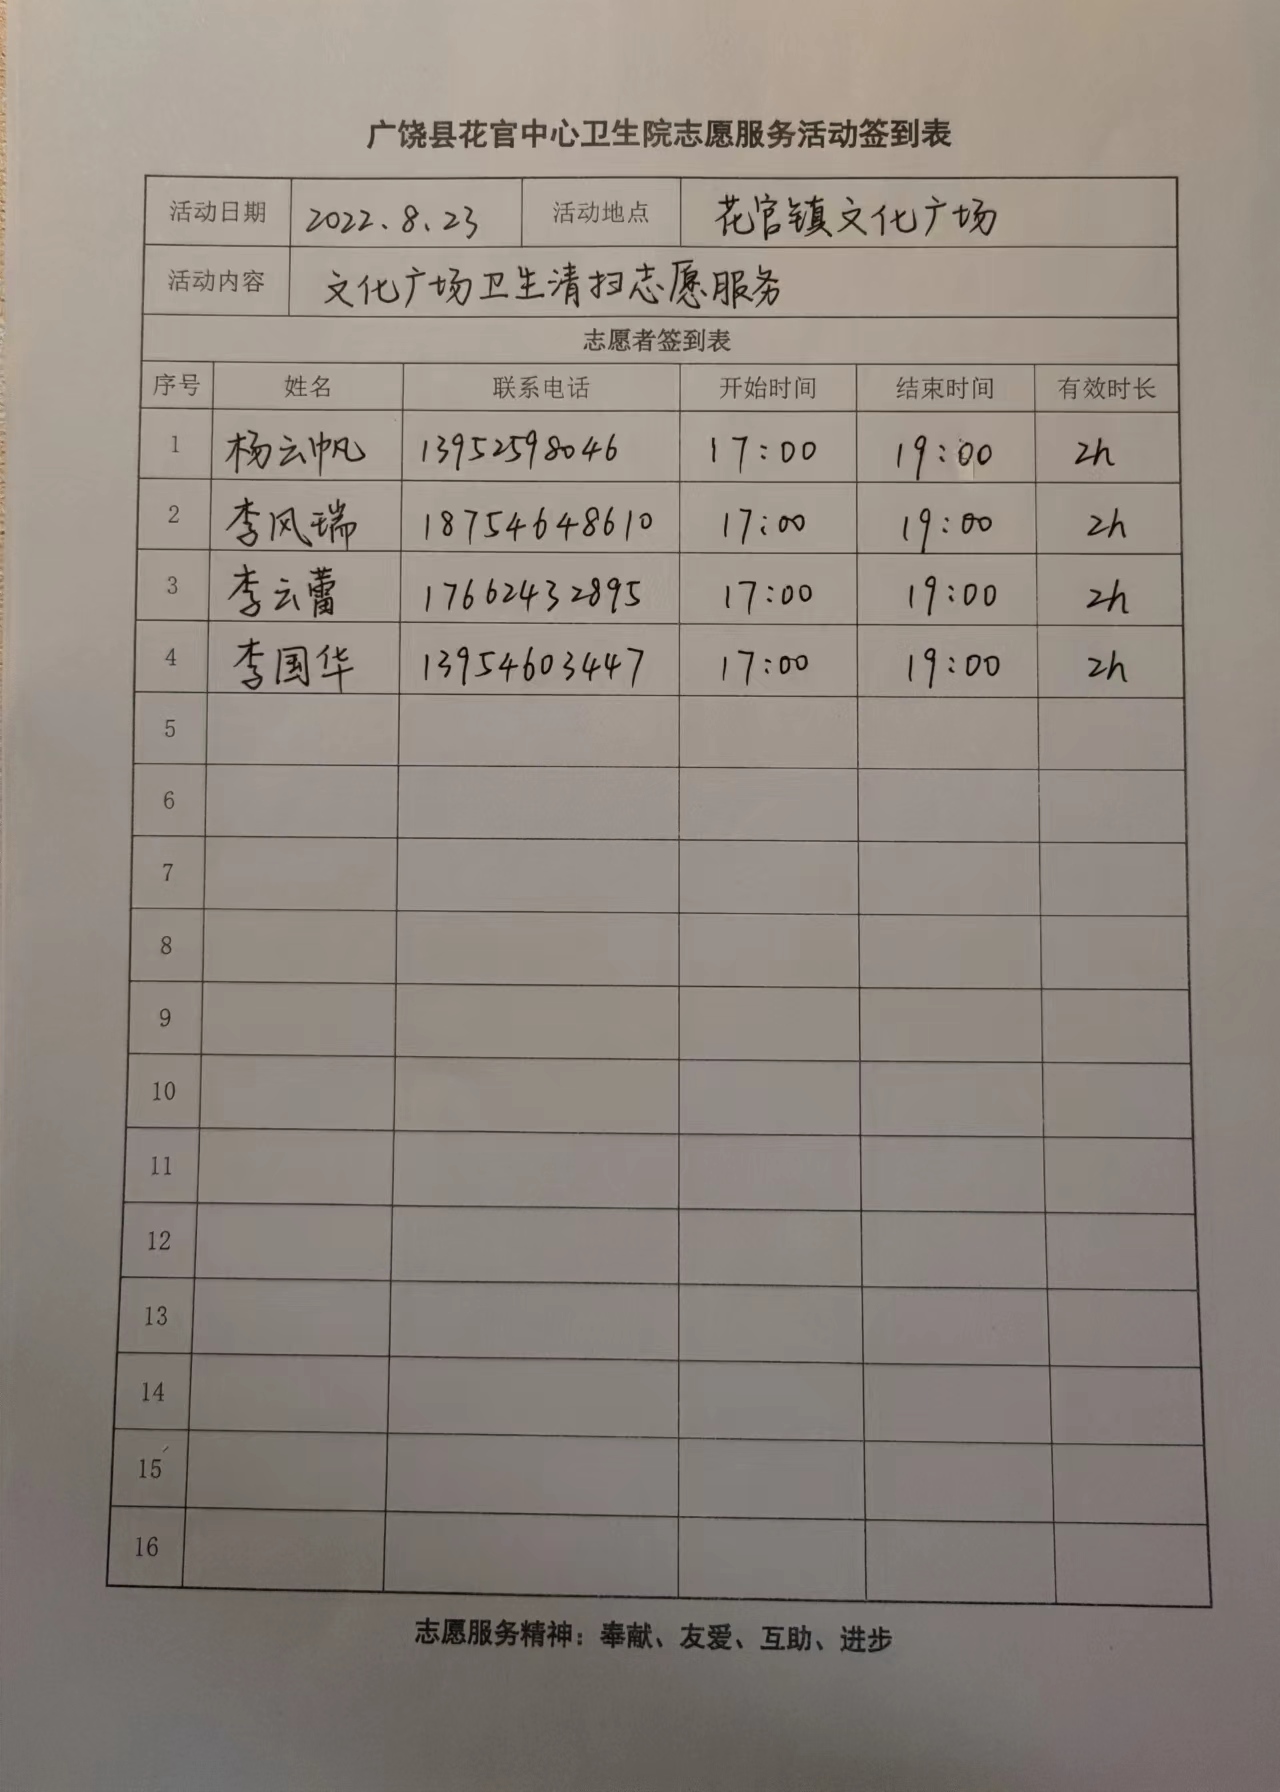 广饶县花官中心卫生院志愿服务活动签到表
活动日期 2022.8.23 活动地点 花官镇文化广场
活动内容 文化广场卫生清扫志愿服务
志愿者签到表
序号 姓名 联系电话 开始时间 结束时间 有效时长
1 杨云帆 13952598046 17:00 19:00 2h
2 李风瑞 18754648610 17:00 19:00 2h
3 李云蕾 17662432895 17:00 19:00 2h
4 李国华 13954603447 17:00 19:00 2h
5
6
7
8
9
10
11
12
13
14
15
16
志愿服务精神：奉献、友爱、互助、进步